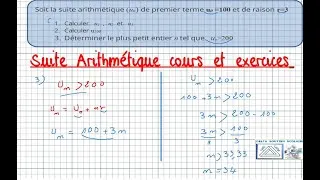 Soit la suite arithmétique (uₙ) de premier terme u₀=100 et de raison r=3
1. Calculer u₁, u₂ et u₃
2. Calculer
3. Déterminer le plus petit entier n tel que uₙ>200
Suite Arithmétique cours et exercices
3)
Uₙ > 200
Uₙ = U₀ + nr
Uₙ = 100 + 3n
Uₙ > 200
100 + 3n > 200
3n > 200 - 100
3n/3 > 100/3
n > 33,33
n = 34